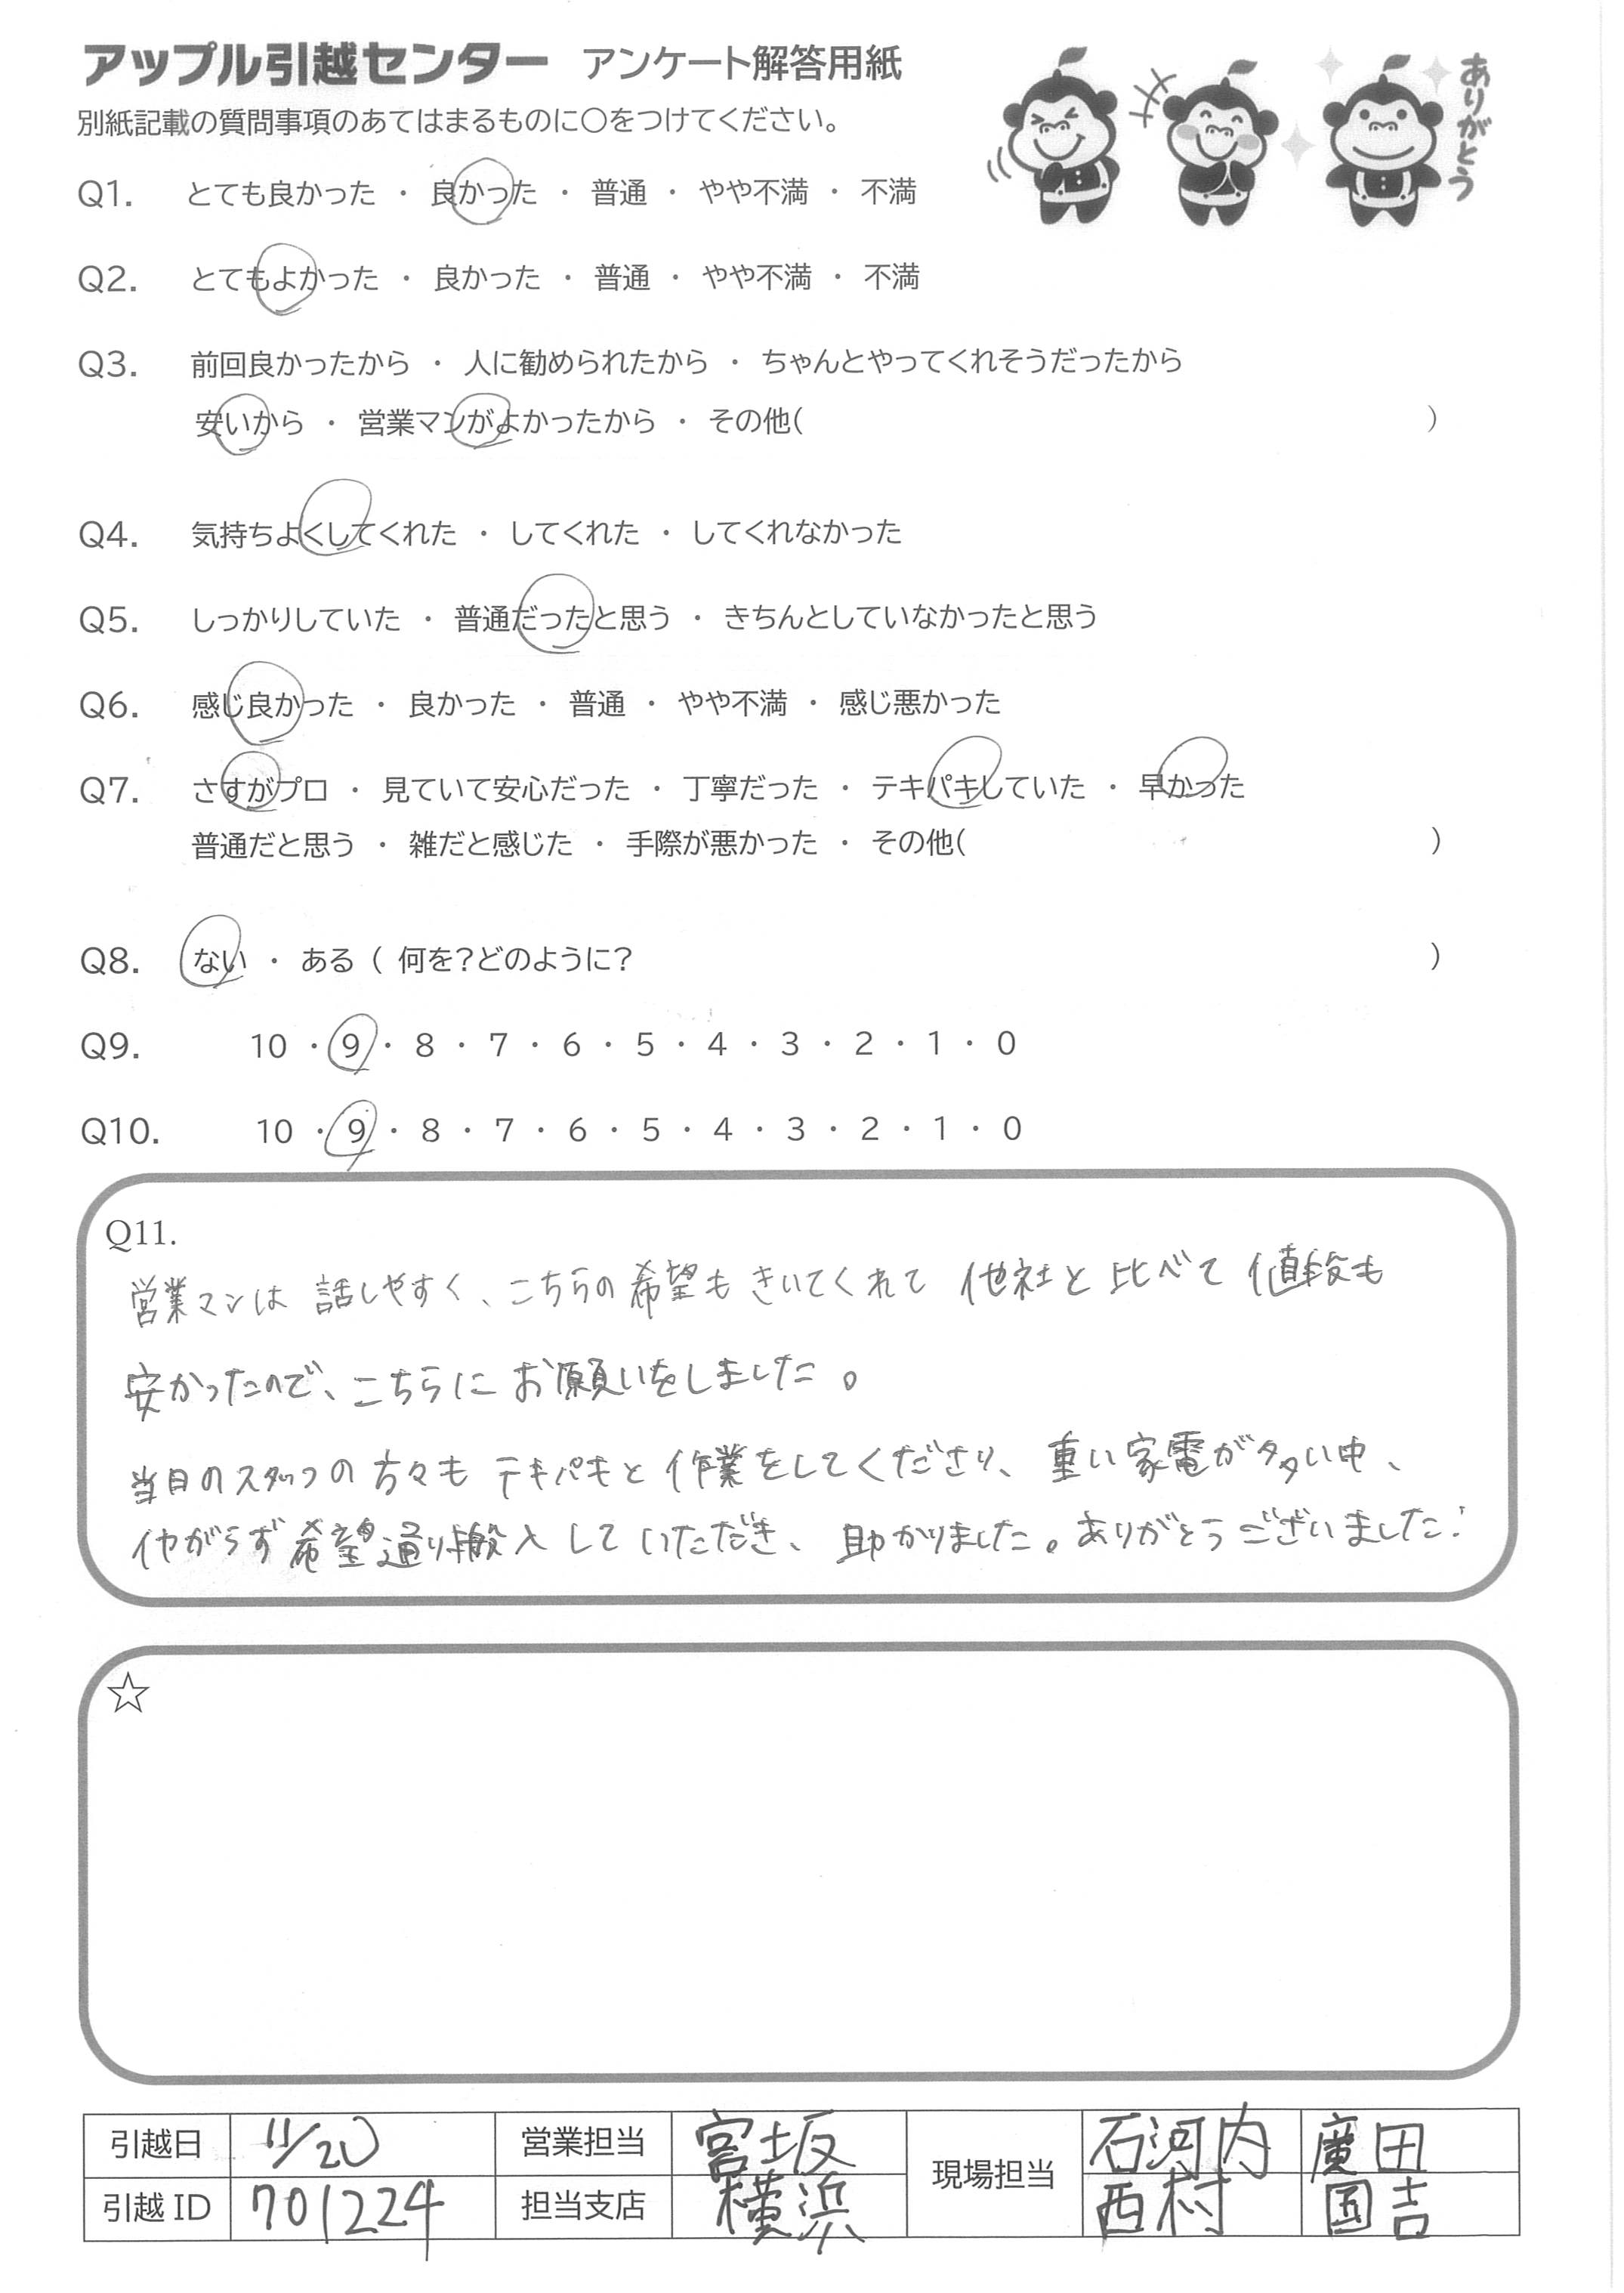 アップル引越センター アンケート解答用紙
ありがとう
別紙記載の質問事項のあてはまるものに○をつけてください。
Q1. とても良かった ・ 良かった ・ 普通 ・ やや不満 ・ 不満
Q2. とてもよかった ・ 良かった ・ 普通 ・ やや不満 ・ 不満
Q3. 前回良かったから ・ 人に勧められたから ・ ちゃんとやってくれそうだったから
安いから ・ 営業マンがよかったから ・ その他( )
Q4. 気持ちよくしてくれた ・ してくれた ・ してくれなかった
Q5. しっかりしていた ・ 普通だったと思う ・ きちんとしていなかったと思う
Q6. 感じ良かった ・ 良かった ・ 普通 ・ やや不満 ・ 感じ悪かった
Q7. さすがプロ ・ 見ていて安心だった ・ 丁寧だった ・ テキパキしていた ・ 早かった
普通だと思う ・ 雑だと感じた ・ 手際が悪かった ・ その他( )
Q8. ない ・ ある ( 何を?どのように? )
Q9. 10 ・ 9 ・ 8 ・ 7 ・ 6 ・ 5 ・ 4 ・ 3 ・ 2 ・ 1 ・ 0
Q10. 10 ・ 9 ・ 8 ・ 7 ・ 6 ・ 5 ・ 4 ・ 3 ・ 2 ・ 1 ・ 0
Q11.
営業マンは 話しやすく、こちらの希望もきいてくれて 他社と比べて 値段も
安かったので、こちらに お願いをしました。
当日のスタッフの方々も テキパキと 作業をしてくださり、重い家電が多い中、
イヤがらず希望通り搬入していただき、助かりました。ありがとうございました!
☆
引越日 11/20 営業担当 宮坂 現場担当 石河内 廣田
引越ID 701224 担当支店 横浜 西村 国吉